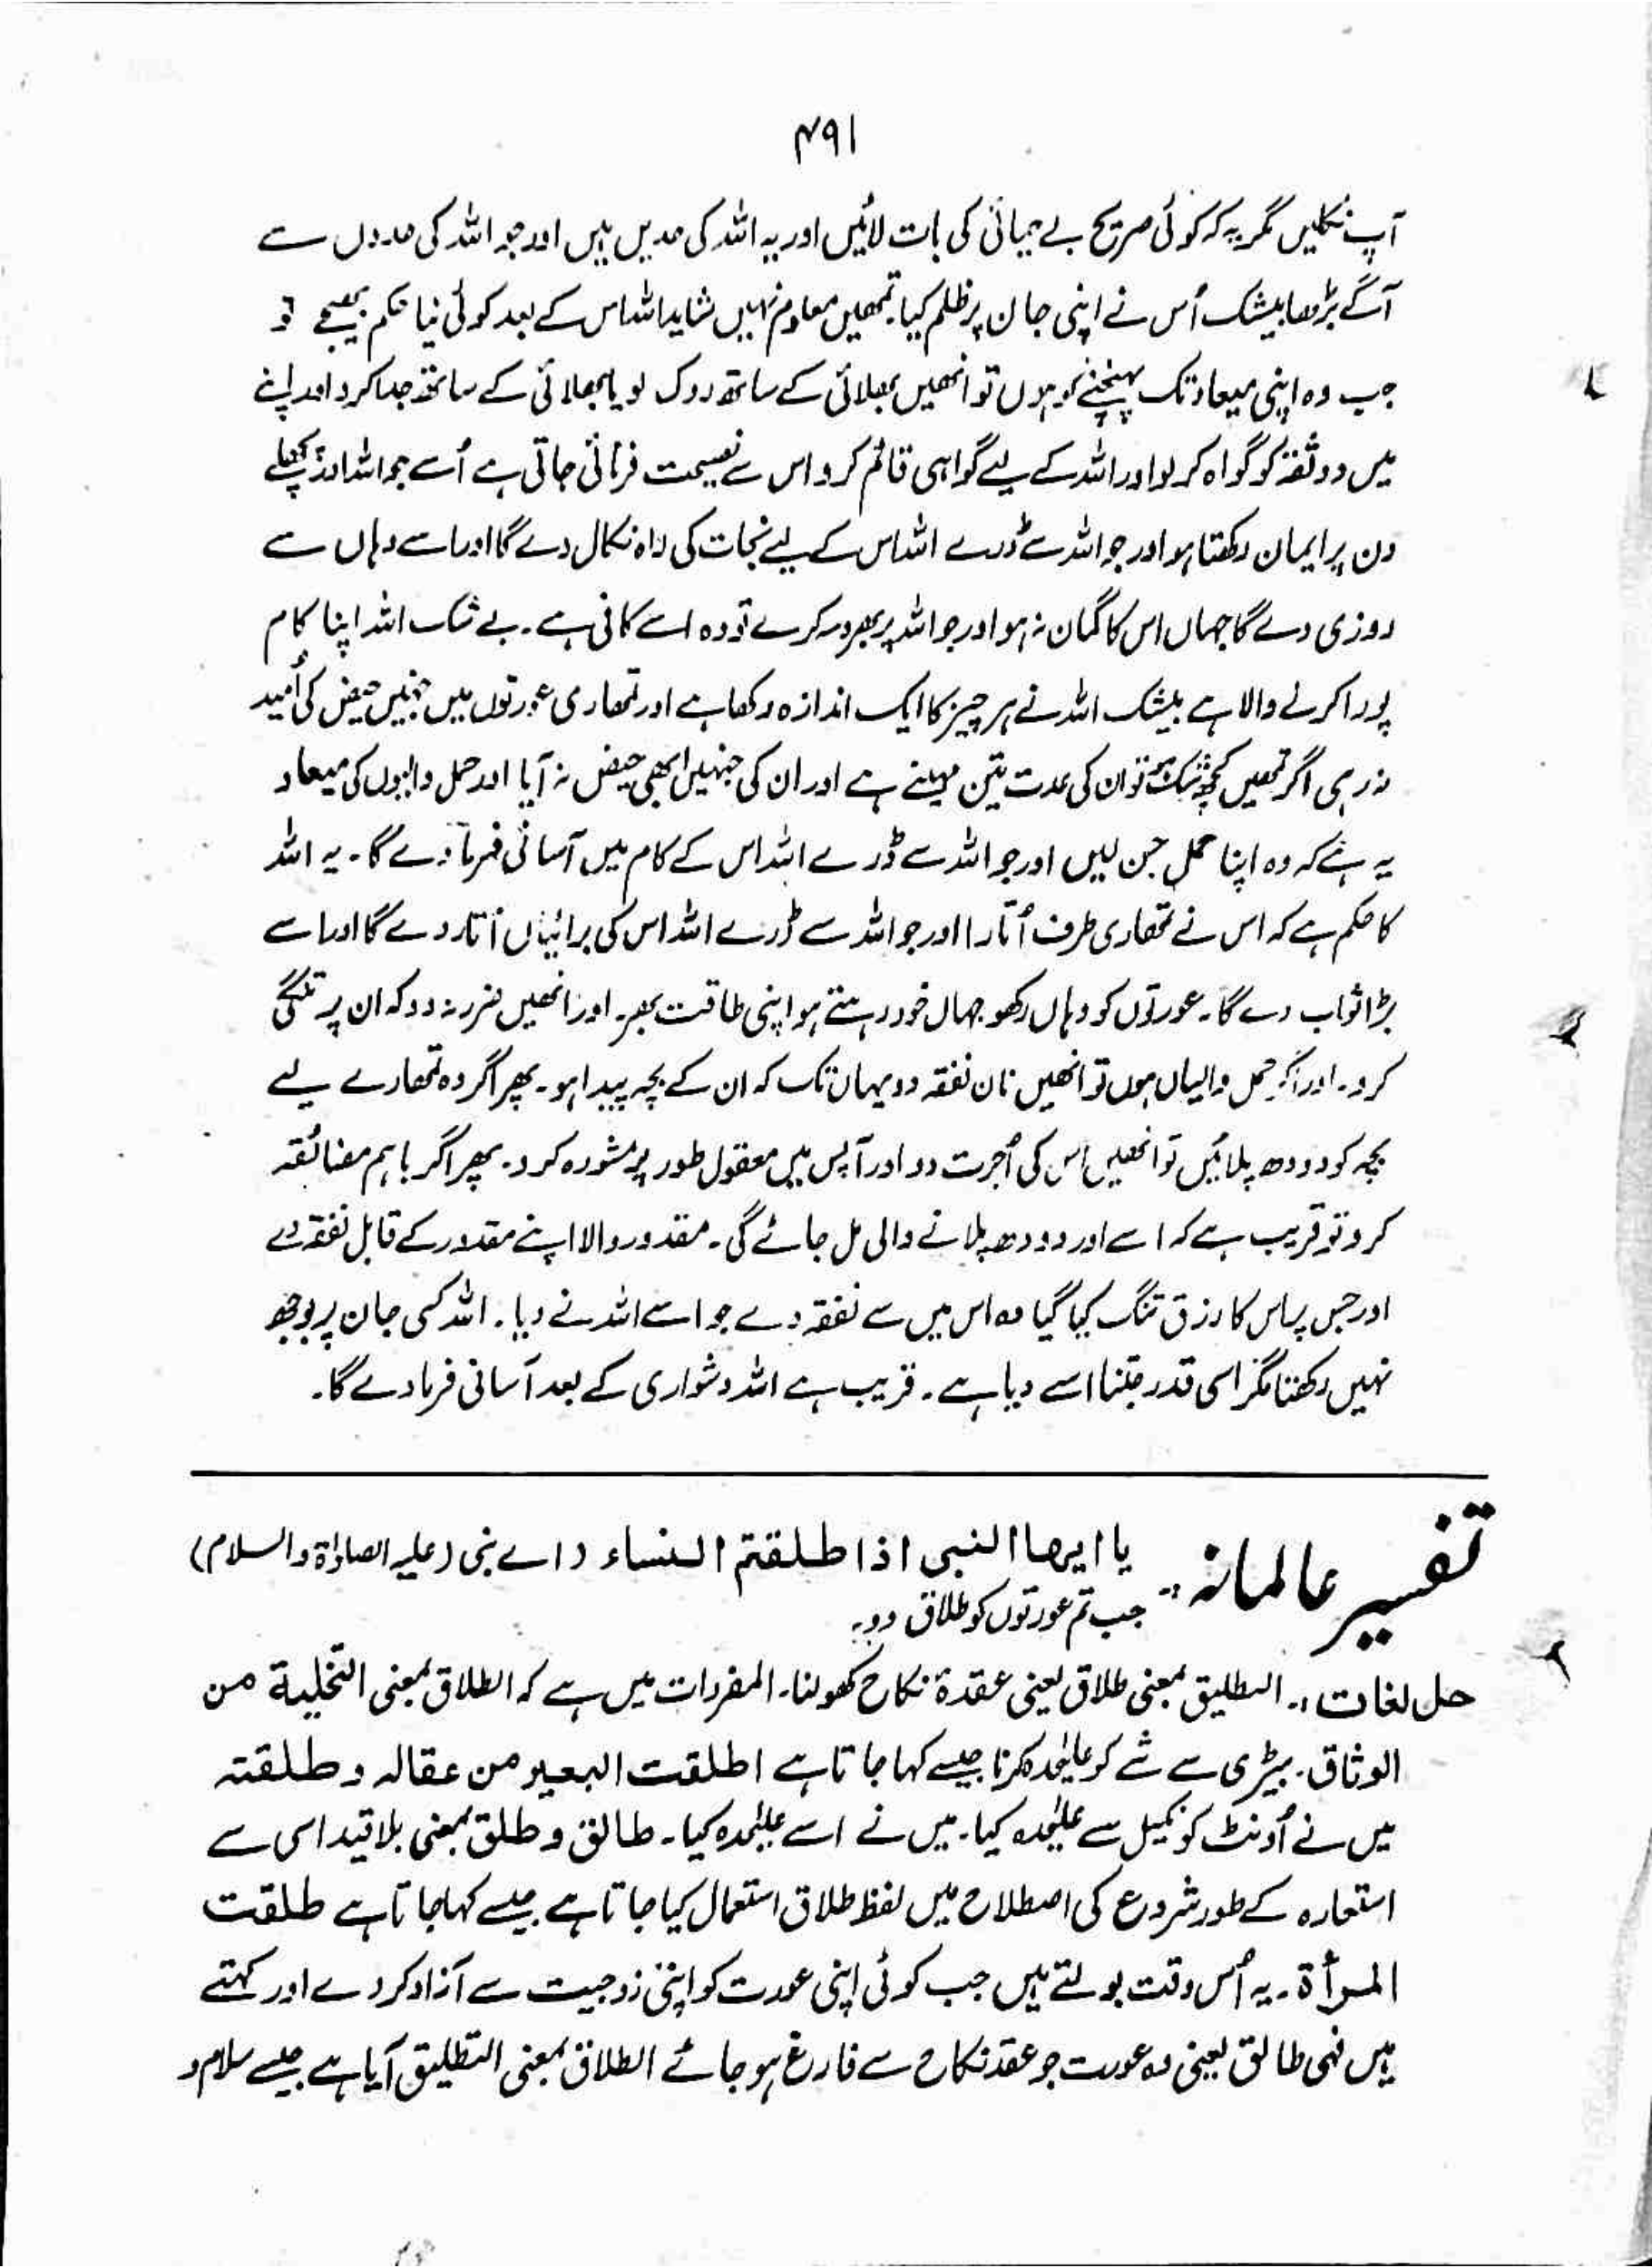 ۴۹۱
آپ نکلیں مگر یہ کہ کوئی صریح بے حیائی کی بات لائیں اور یہ اللہ کی حدیں ہیں اور جو اللہ کی حدوں سے
آگے بڑھا بیشک اُس نے اپنی جان پر ظلم کیا۔ تمھیں معلوم نہیں شاید اللہ اس کے بعد کوئی نیا حکم بھیجے تو
جب وہ اپنی میعاد تک پہنچنے کو ہوں تو انھیں بھلائی کے ساتھ روک لو یا بھلائی کے ساتھ جدا کر دو اور اپنے
میں دو ثقہ کو گواہ کر لو اور اللہ کے لیے گواہی قائم کرو اس سے نصیحت فرمائی جاتی ہے اُسے جو اللہ اور پچھلے
دن پر ایمان رکھتا ہو اور جو اللہ سے ڈرے اللہ اس کے لیے نجات کی راہ نکال دے گا اور اسے وہاں سے
روزی دے گا جہاں اس کا گمان نہ ہو اور جو اللہ پر بھروسہ کرے تو وہ اسے کافی ہے۔ بے شک اللہ اپنا کام
پورا کرنے والا ہے بیشک اللہ نے ہر چیز کا ایک اندازہ رکھا ہے اور تمھاری عورتوں میں جنہیں حیض کی اُمید
نہ رہی اگر تمھیں کچھ شک ہو تو ان کی عدت تین مہینے ہے اور ان کی جنہیں ابھی حیض نہ آیا اور حمل والیوں کی میعاد
یہ ہے کہ وہ اپنا حمل جن لیں اور جو اللہ سے ڈرے اللہ اس کے کام میں آسانی فرما دے گا۔ یہ اللہ
کا حکم ہے کہ اس نے تمھاری طرف اُتارا اور جو اللہ سے ڈرے اللہ اس کی برائیاں اُتار دے گا اور اسے
بڑا ثواب دے گا۔ عورتوں کو وہاں رکھو جہاں خود رہتے ہو اپنی طاقت بھر۔ اور انھیں ضرر نہ دو کہ ان پر تنگی
کرو۔ اور اگر حمل والیاں ہوں تو انھیں نان نفقہ دو یہاں تک کہ ان کے بچہ پیدا ہو۔ پھر اگر وہ تمھارے لیے
بچہ کو دودھ پلائیں تو انھیں اس کی اُجرت دو اور آپس میں معقول طور پر مشورہ کرو۔ پھر اگر باہم مضائقہ
کرو تو قریب ہے کہ اسے اور دودھ پلانے والی مل جائے گی۔ مقدور والا اپنے مقدور کے قابل نفقہ دے
اور جس پر اس کا رزق تنگ کیا گیا وہ اس میں سے نفقہ دے جو اسے اللہ نے دیا۔ اللہ کسی جان پر بوجھ
نہیں رکھتا مگر اسی قدر جتنا اسے دیا ہے۔ قریب ہے اللہ دشواری کے بعد آسانی فرما دے گا۔
تفسیر عالمانہ :- یا ایہا النبی اذا طلقتم النساء (اے نبی (علیہ الصلوٰۃ والسلام)
جب تم عورتوں کو طلاق دو۔
حل لغات :۔ التطلیق بمعنی طلاق یعنی عقدۂ نکاح کھولنا۔ المفردات میں ہے کہ الطلاق بمعنی التخلیة من
الوثاق۔ بیڑی سے شے کو علیٰحدہ کرنا جیسے کہا جاتا ہے اطلقت البعیر من عقالہ و طلقتہ
میں نے اُونٹ کو نکیل سے علیٰحدہ کیا۔ میں نے اسے علیٰحدہ کیا۔ طالق و طلق بمعنی بلا قید اسی سے
استعارہ کے طور شروع کی اصطلاح میں لفظ طلاق استعمال کیا جاتا ہے جیسے کہا جاتا ہے طلقت
المرأة۔ یہ اُس وقت بولتے ہیں جب کوئی اپنی عورت کو اپنی زوجیت سے آزاد کر دے اور کہتے
ہیں فہی طالق یعنی وہ عورت جو عقد نکاح سے فارغ ہو جائے الطلاق بمعنی التطلیق آیا ہے جیسے سلام و